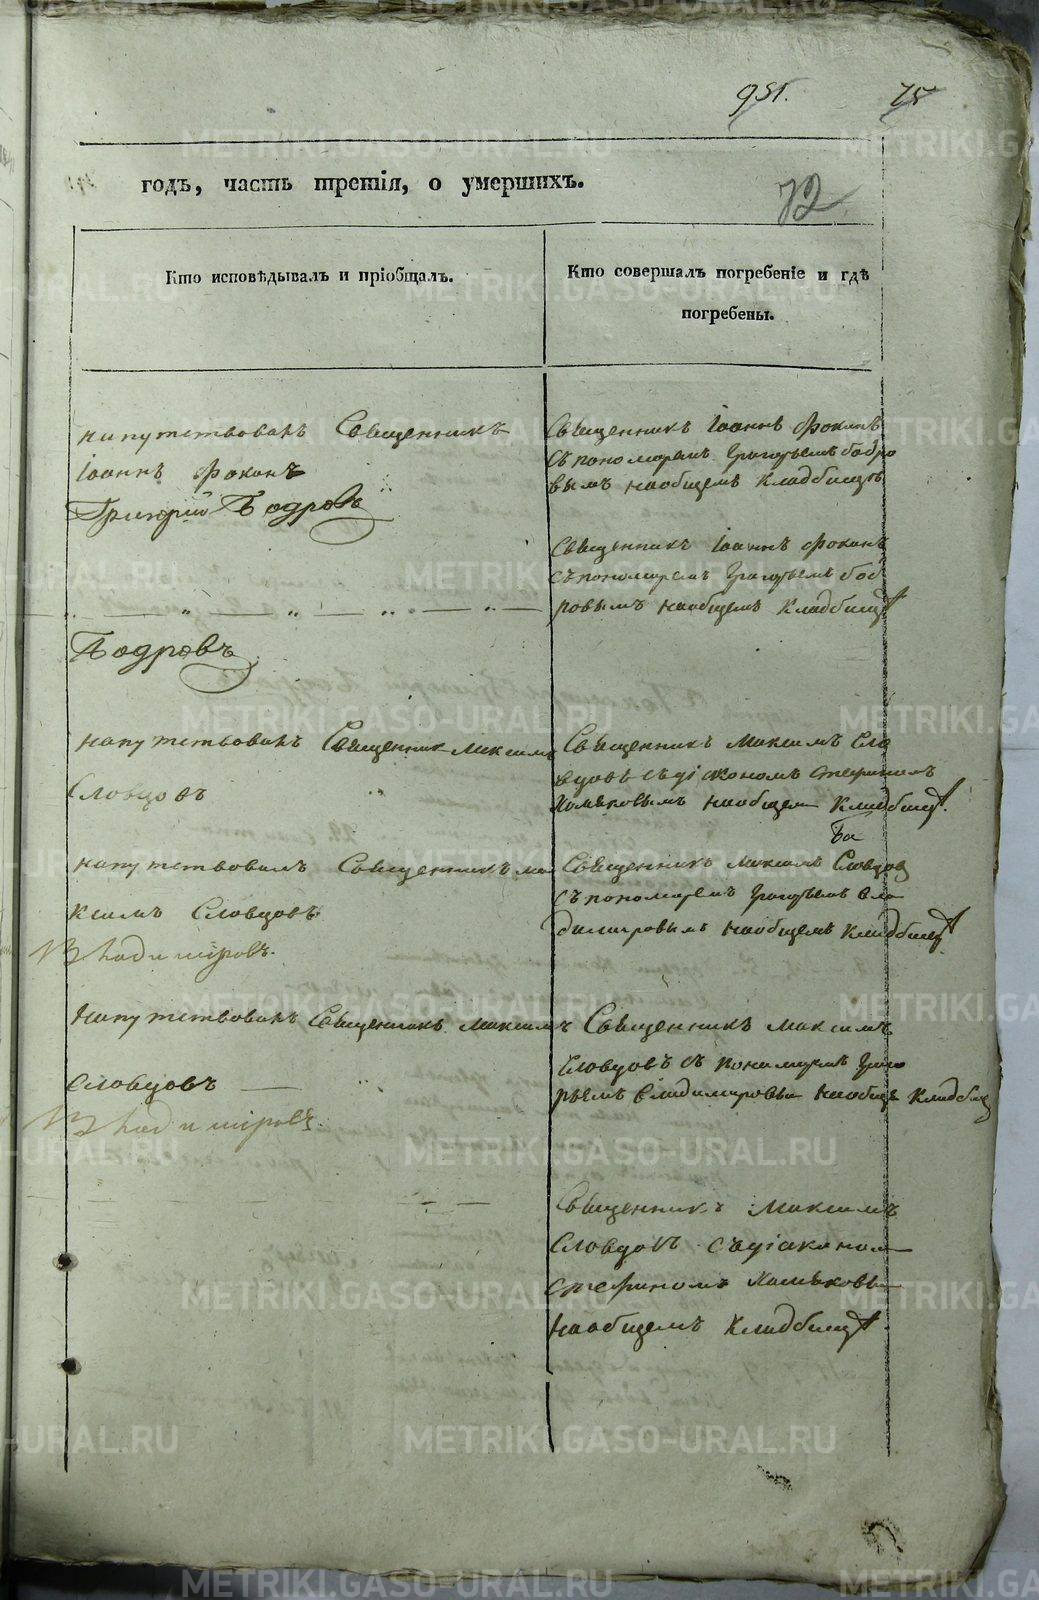 951. 78
годъ, часть третія, о умершихъ.
72
Кто исповѣдывалъ и пріобщалъ.
Кто совершалъ погребеніе и гдѣ
погребены.
напутствовалъ Священникъ
Іоаннъ Фокинъ
Григорій Бодровъ
Священникъ Іоаннъ Фокинъ
съ пономаремъ Григорьемъ бодро
вымъ наобщемъ кладбищѣ
„ — „ — „ — „ — „ —
Бодровъ
Священникъ Іоаннъ Фокинъ
съ пономаремъ Григорьемъ бод
ровымъ наобщемъ кладбищѣ
напутствовалъ Священник Максимъ
Словцовъ
Священникъ Максимъ Сло
вцовъ съдіакономъ Стефаномъ
Хомяковымъ наобщем кладбищѣ.
напутствовалъ Священникъ ма
ксимъ Словцовъ
Владиміровъ.
Священникъ Максимъ Словцов
съ пономаремъ Григорьемъ вла
димировымъ наобщемъ кладбищѣ
Напутствовалъ Священникъ Максимъ
Словцовъ —
Владиміровъ.
Священникъ Максимъ
Словцовъ съ пономаремъ Григо
рьемъ владимировы наобще кладби
— —
Священникъ Максимъ
Словцовъ съдіаконом
стефаномъ Хомяковы
наобщемъ кладбищѣ.
METRIKI.GASO-URAL.RU